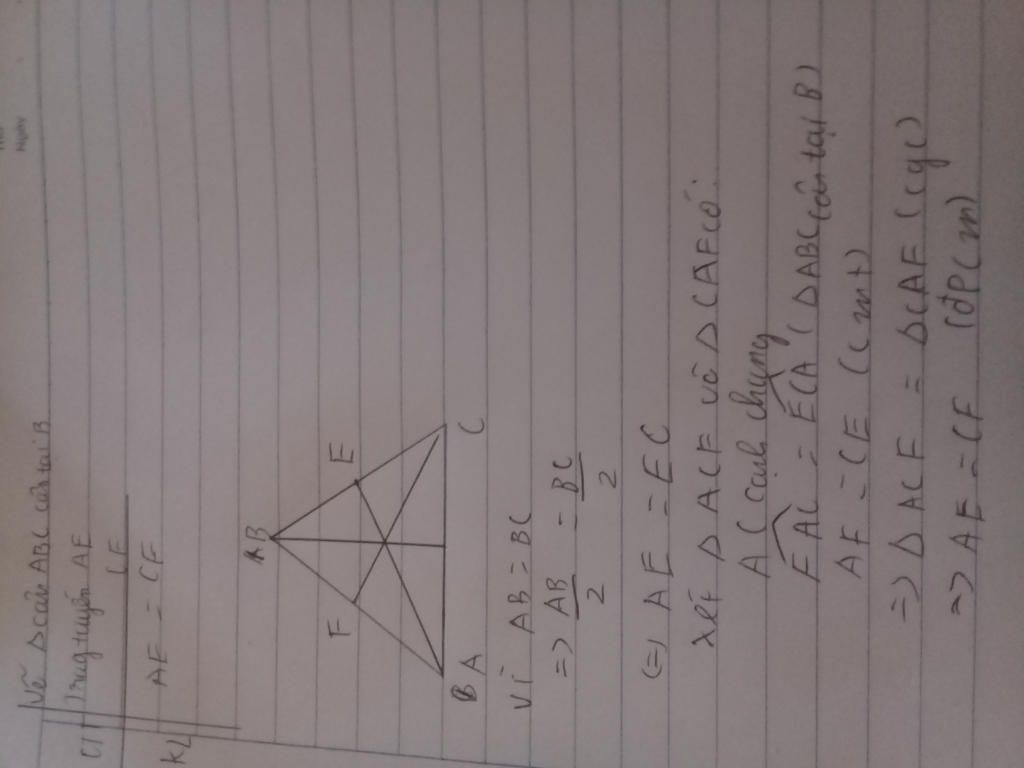 Vẽ Δ cân ABC cân tại B
GT Trung tuyến AE
CF
KL AE = CF
A B
F E
B A C
Vì AB = BC
=> AB/2 = BC/2
(=) AF = EC
Xét Δ ACF và Δ CAE có:
AC cạnh chung
FAC = ECA (Δ ABC cân tại B)
AF = CE (cmt)
=> Δ ACF = Δ CAE (cgc)
=> AE = CF (đpcm)